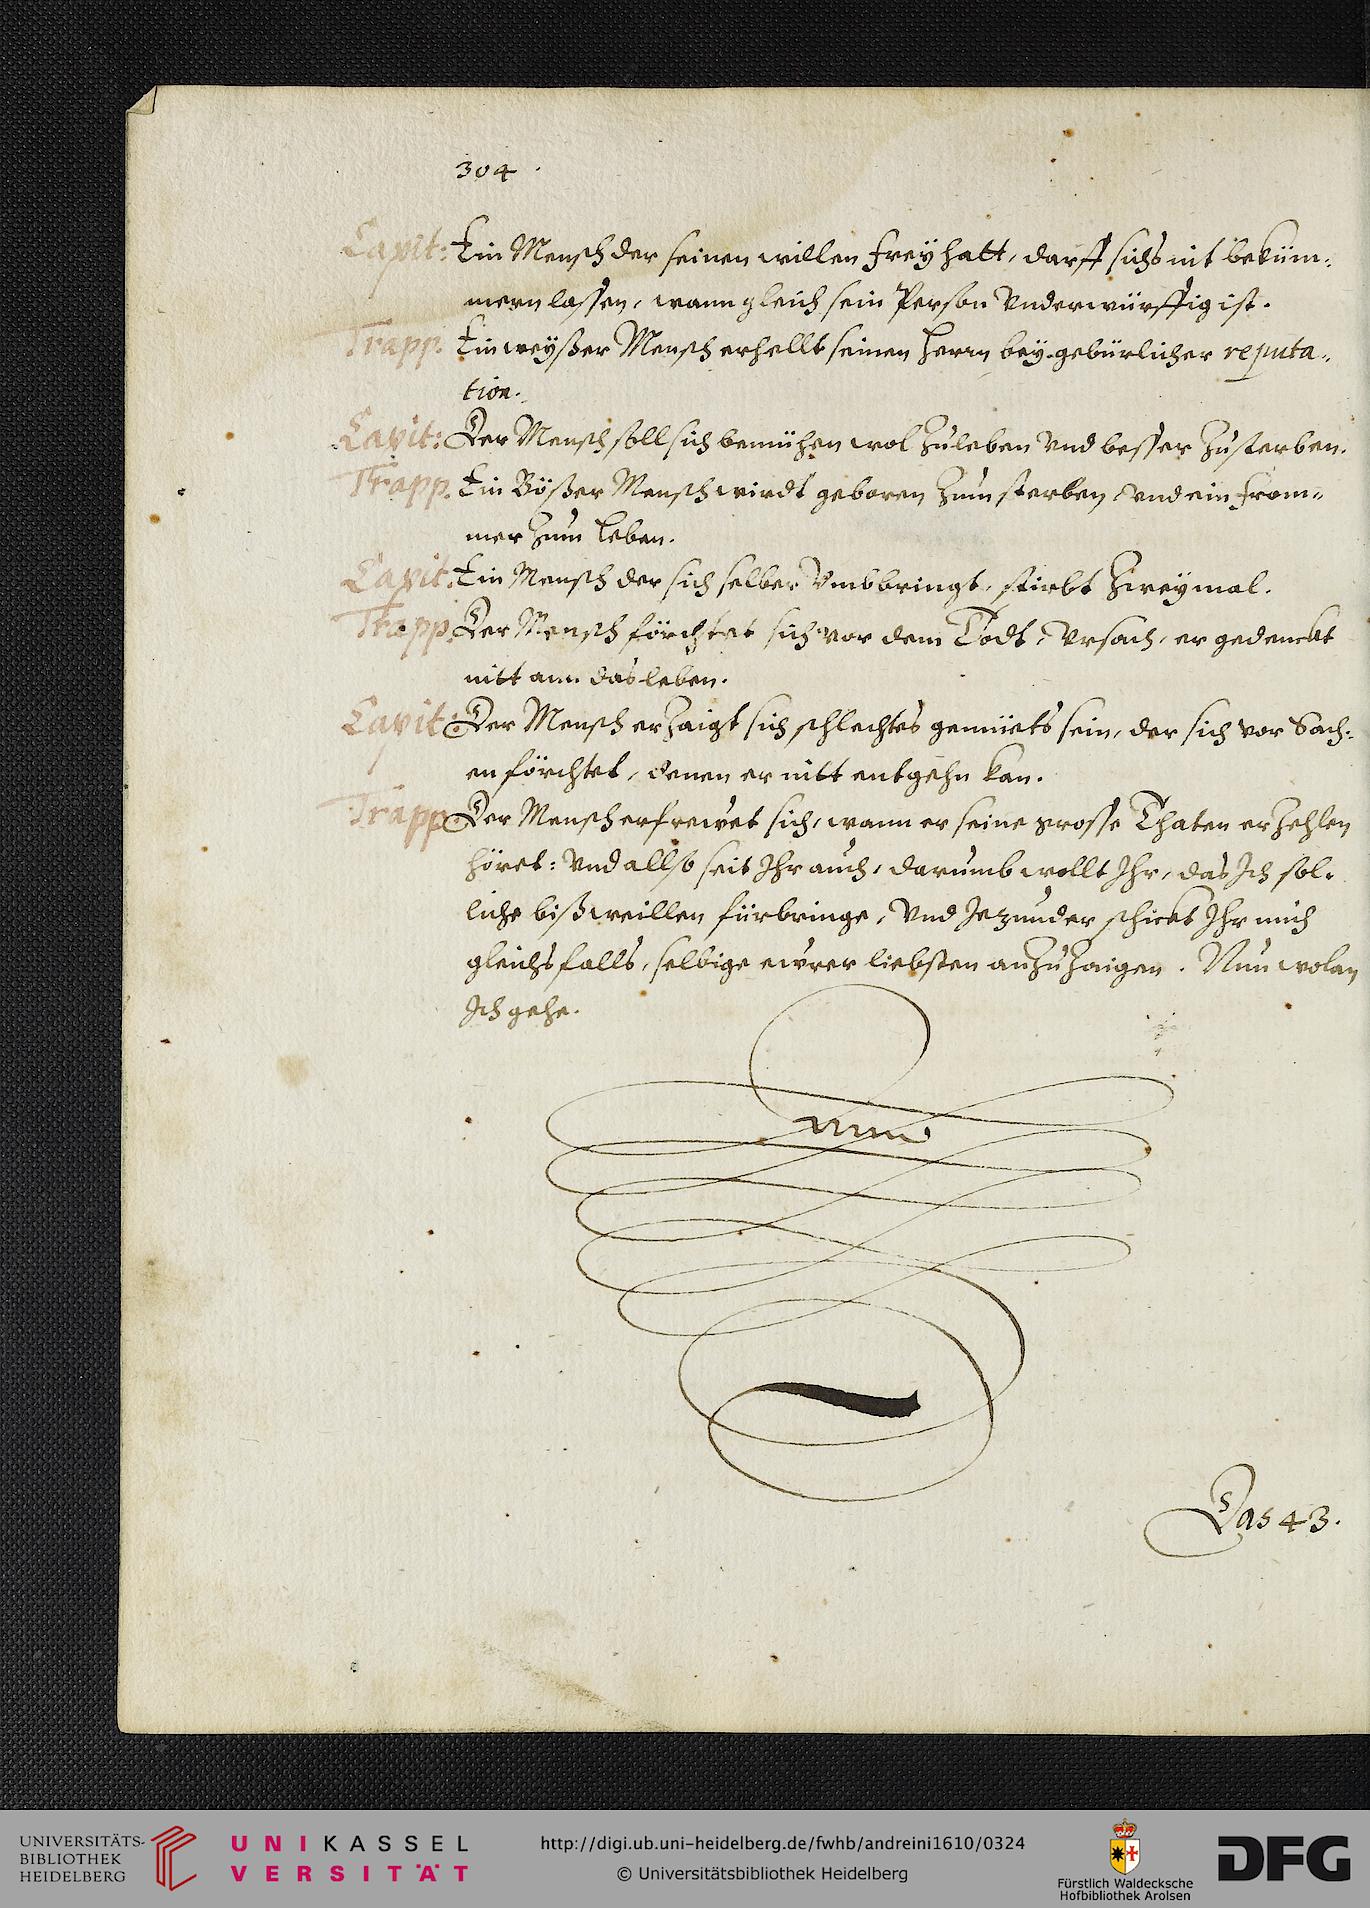 304.
Capit: Ein Mensch der seinen willen frey hatt, darff sichs nit bekům-
mern lassen, wann gleich sein Person Underwürffig ist.
Trapp. Ein weyßer Mensch erhellt seinen Herrn bey gebürlicher reputa-
tion.
Capit: Der Mensch soll sich bemühen wol zuleben und besser zusterben.
Trapp. Ein Bößer Mensch wirdt geboren zum sterben, und ein from-
mer zum leben.
Capit: Ein Mensch der sich selber Umbbringt, stirbt zweymal.
Trapp. Der Mensch förchtet sich vor dem Todt, Ursach, er gedenckt
nitt ann das leben.
Capit: Der Mensch erzaigt sich schlechtes gemüets sein, der sich vor Sach-
en förchtet, denen er nitt entgehn kan.
Trapp. Der Mensch erfrewet sich, wann er seine grosse Thaten erzehlen
höret: Und allso seit Ihr auch, darumb wollt Ihr, das Ich sol-
liche bißweillen fürbringe, Und Jezunder schickt Ihr mich
gleichsfalls, selbige ewrer liebsten anzuzaigen. Nun wolan
Ich gehe.
Das 43.
UNIVERSITÄTS-
BIBLIOTHEK
HEIDELBERG
UNIKASSEL
VERSITÄT
http://digi.ub.uni-heidelberg.de/fwhb/andreini1610/0324
© Universitätsbibliothek Heidelberg
Fürstlich Waldecksche
Hofbibliothek Arolsen
DFG